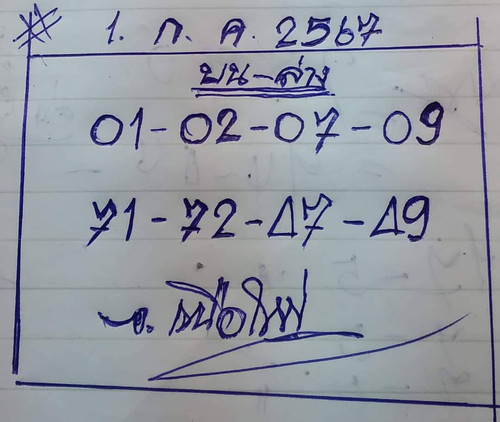 # 1. ก. ค. 2567
บน-ล่าง
01-02-07-09
71-72-47-49